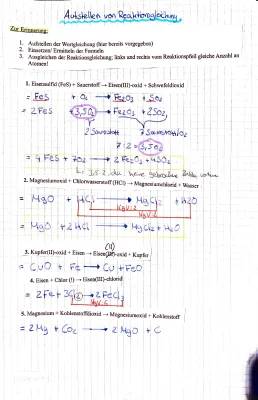 Aufstellen von Reaktionsgleichung
Zur Erinnerung:
1. Aufstellen der Wortgleichung (hier bereits vorgegeben)
2. Einsetzen/ Ermitteln der Formeln
3. Ausgleichen der Reaktionsgleichung; links und rechts vom Reaktionspfeil gleiche Anzahl an Atomen!
1. Eisensulfid (FeS) + Sauerstoff → Eisen(III)-oxid + Schwefeldioxid
= FeS + O₂ → Fe₂O₃ + SO₂
= 2FeS + 3,5O₂ → Fe₂O₃ + 2SO₂
7:2 = 3,5O₂
= 4FeS + 7O₂ → 2Fe₂O₃ + 4SO₂
2. Magnesiumoxid + Chlorwasserstoff (HCl) → Magnesiumchlorid + Wasser
= MgO + HCl → MgCl₂ + H₂O
KgV: 2
KgV: 2
= MgO + 2HCl → MgCl₂ + H₂O
(II)
3. Kupfer(II)-oxid + Eisen → Eisen(III)-oxid + Kupfer
= CuO + Fe → Cu + FeO
4. Eisen + Chlor (!) → Eisen(III)-chlorid
= 2Fe + 3Cl₂ → 2FeCl₃
KgV: 6
5. Magnesium + Kohlenstoffdioxid → Magnesiumoxid + Kohlenstoff
= 2Mg + CO₂ → 2MgO + C